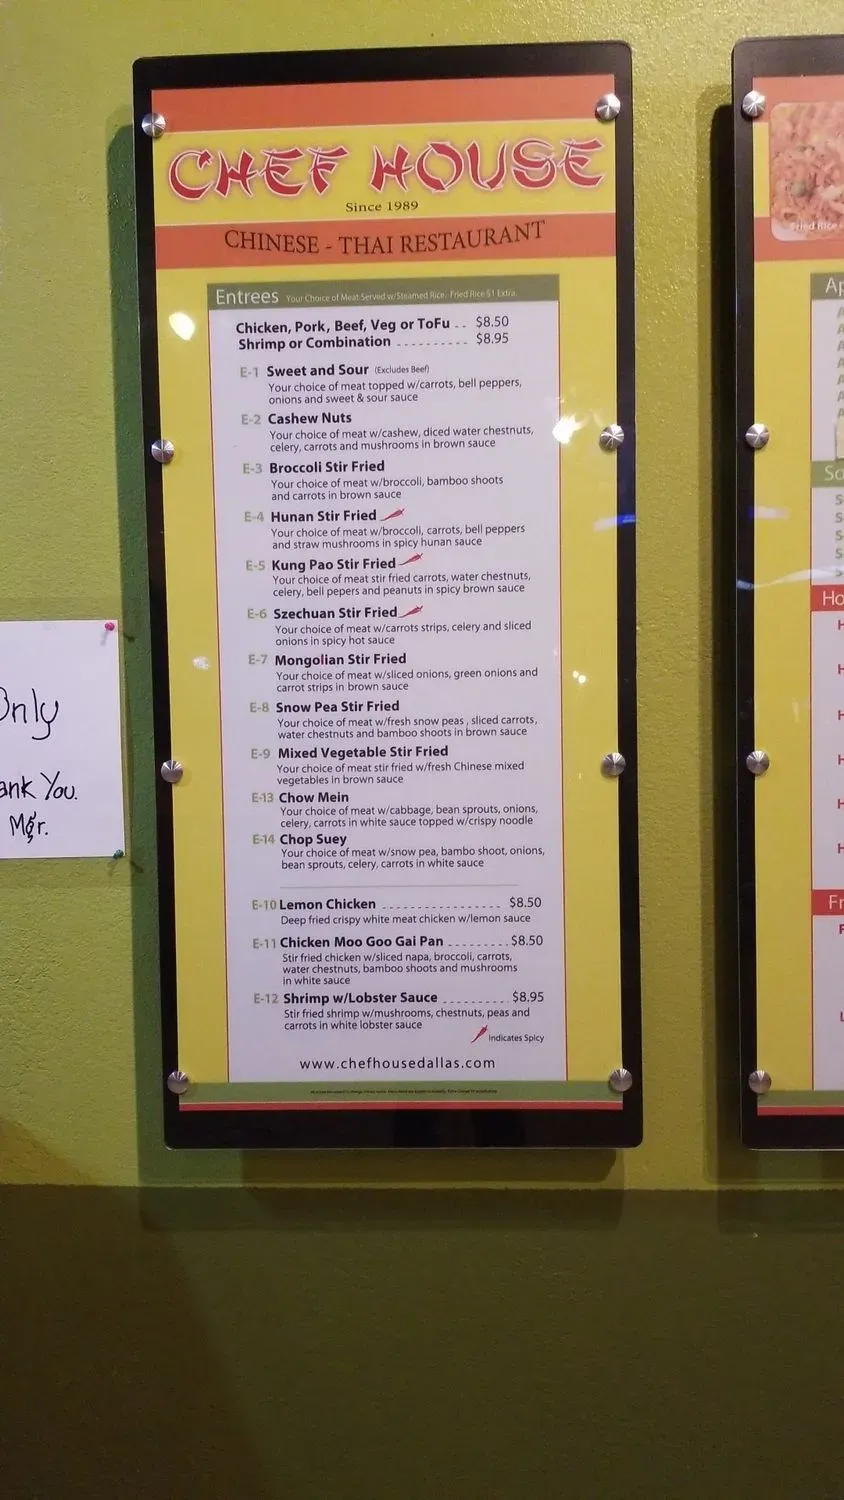 CHEF HOUSE
Since 1989
CHINESE - THAI RESTAURANT
Entrees Your Choice of Meat Served w/Steamed Rice. Fried Rice $1 Extra.
Chicken, Pork, Beef, Veg or ToFu .. $8.50
Shrimp or Combination .......... $8.95
E-1 Sweet and Sour (Excludes Beef)
Your choice of meat topped w/carrots, bell peppers,
onions and sweet & sour sauce
E-2 Cashew Nuts
Your choice of meat w/cashew, diced water chestnuts,
celery, carrots and mushrooms in brown sauce
E-3 Broccoli Stir Fried
Your choice of meat w/broccoli, bamboo shoots
and carrots in brown sauce
E-4 Hunan Stir Fried
Your choice of meat w/broccoli, carrots, bell peppers
and straw mushrooms in spicy hunan sauce
E-5 Kung Pao Stir Fried
Your choice of meat stir fried carrots, water chestnuts,
celery, bell pepers and peanuts in spicy brown sauce
E-6 Szechuan Stir Fried
Your choice of meat w/carrots strips, celery and sliced
onions in spicy hot sauce
E-7 Mongolian Stir Fried
Your choice of meat w/sliced onions, green onions and
carrot strips in brown sauce
E-8 Snow Pea Stir Fried
Your choice of meat w/fresh snow peas , sliced carrots,
water chestnuts and bamboo shoots in brown sauce
E-9 Mixed Vegetable Stir Fried
Your choice of meat stir fried w/fresh Chinese mixed
vegetables in brown sauce
E-13 Chow Mein
Your choice of meat w/cabbage, bean sprouts, onions,
celery, carrots in white sauce topped w/crispy noodle
E-14 Chop Suey
Your choice of meat w/snow pea, bambo shoot, onions,
bean sprouts, celery, carrots in white sauce
E-10 Lemon Chicken .................. $8.50
Deep fried crispy white meat chicken w/lemon sauce
E-11 Chicken Moo Goo Gai Pan ......... $8.50
Stir fried chicken w/sliced napa, broccoli, carrots,
water chestnuts, bamboo shoots and mushrooms
in white sauce
E-12 Shrimp w/Lobster Sauce .......... $8.95
Stir fried shrimp w/mushrooms, chestnuts, peas and
carrots in white lobster sauce
Indicates Spicy
www.chefhousedallas.com
Only
ank You.
Mgr.
Fried Rice